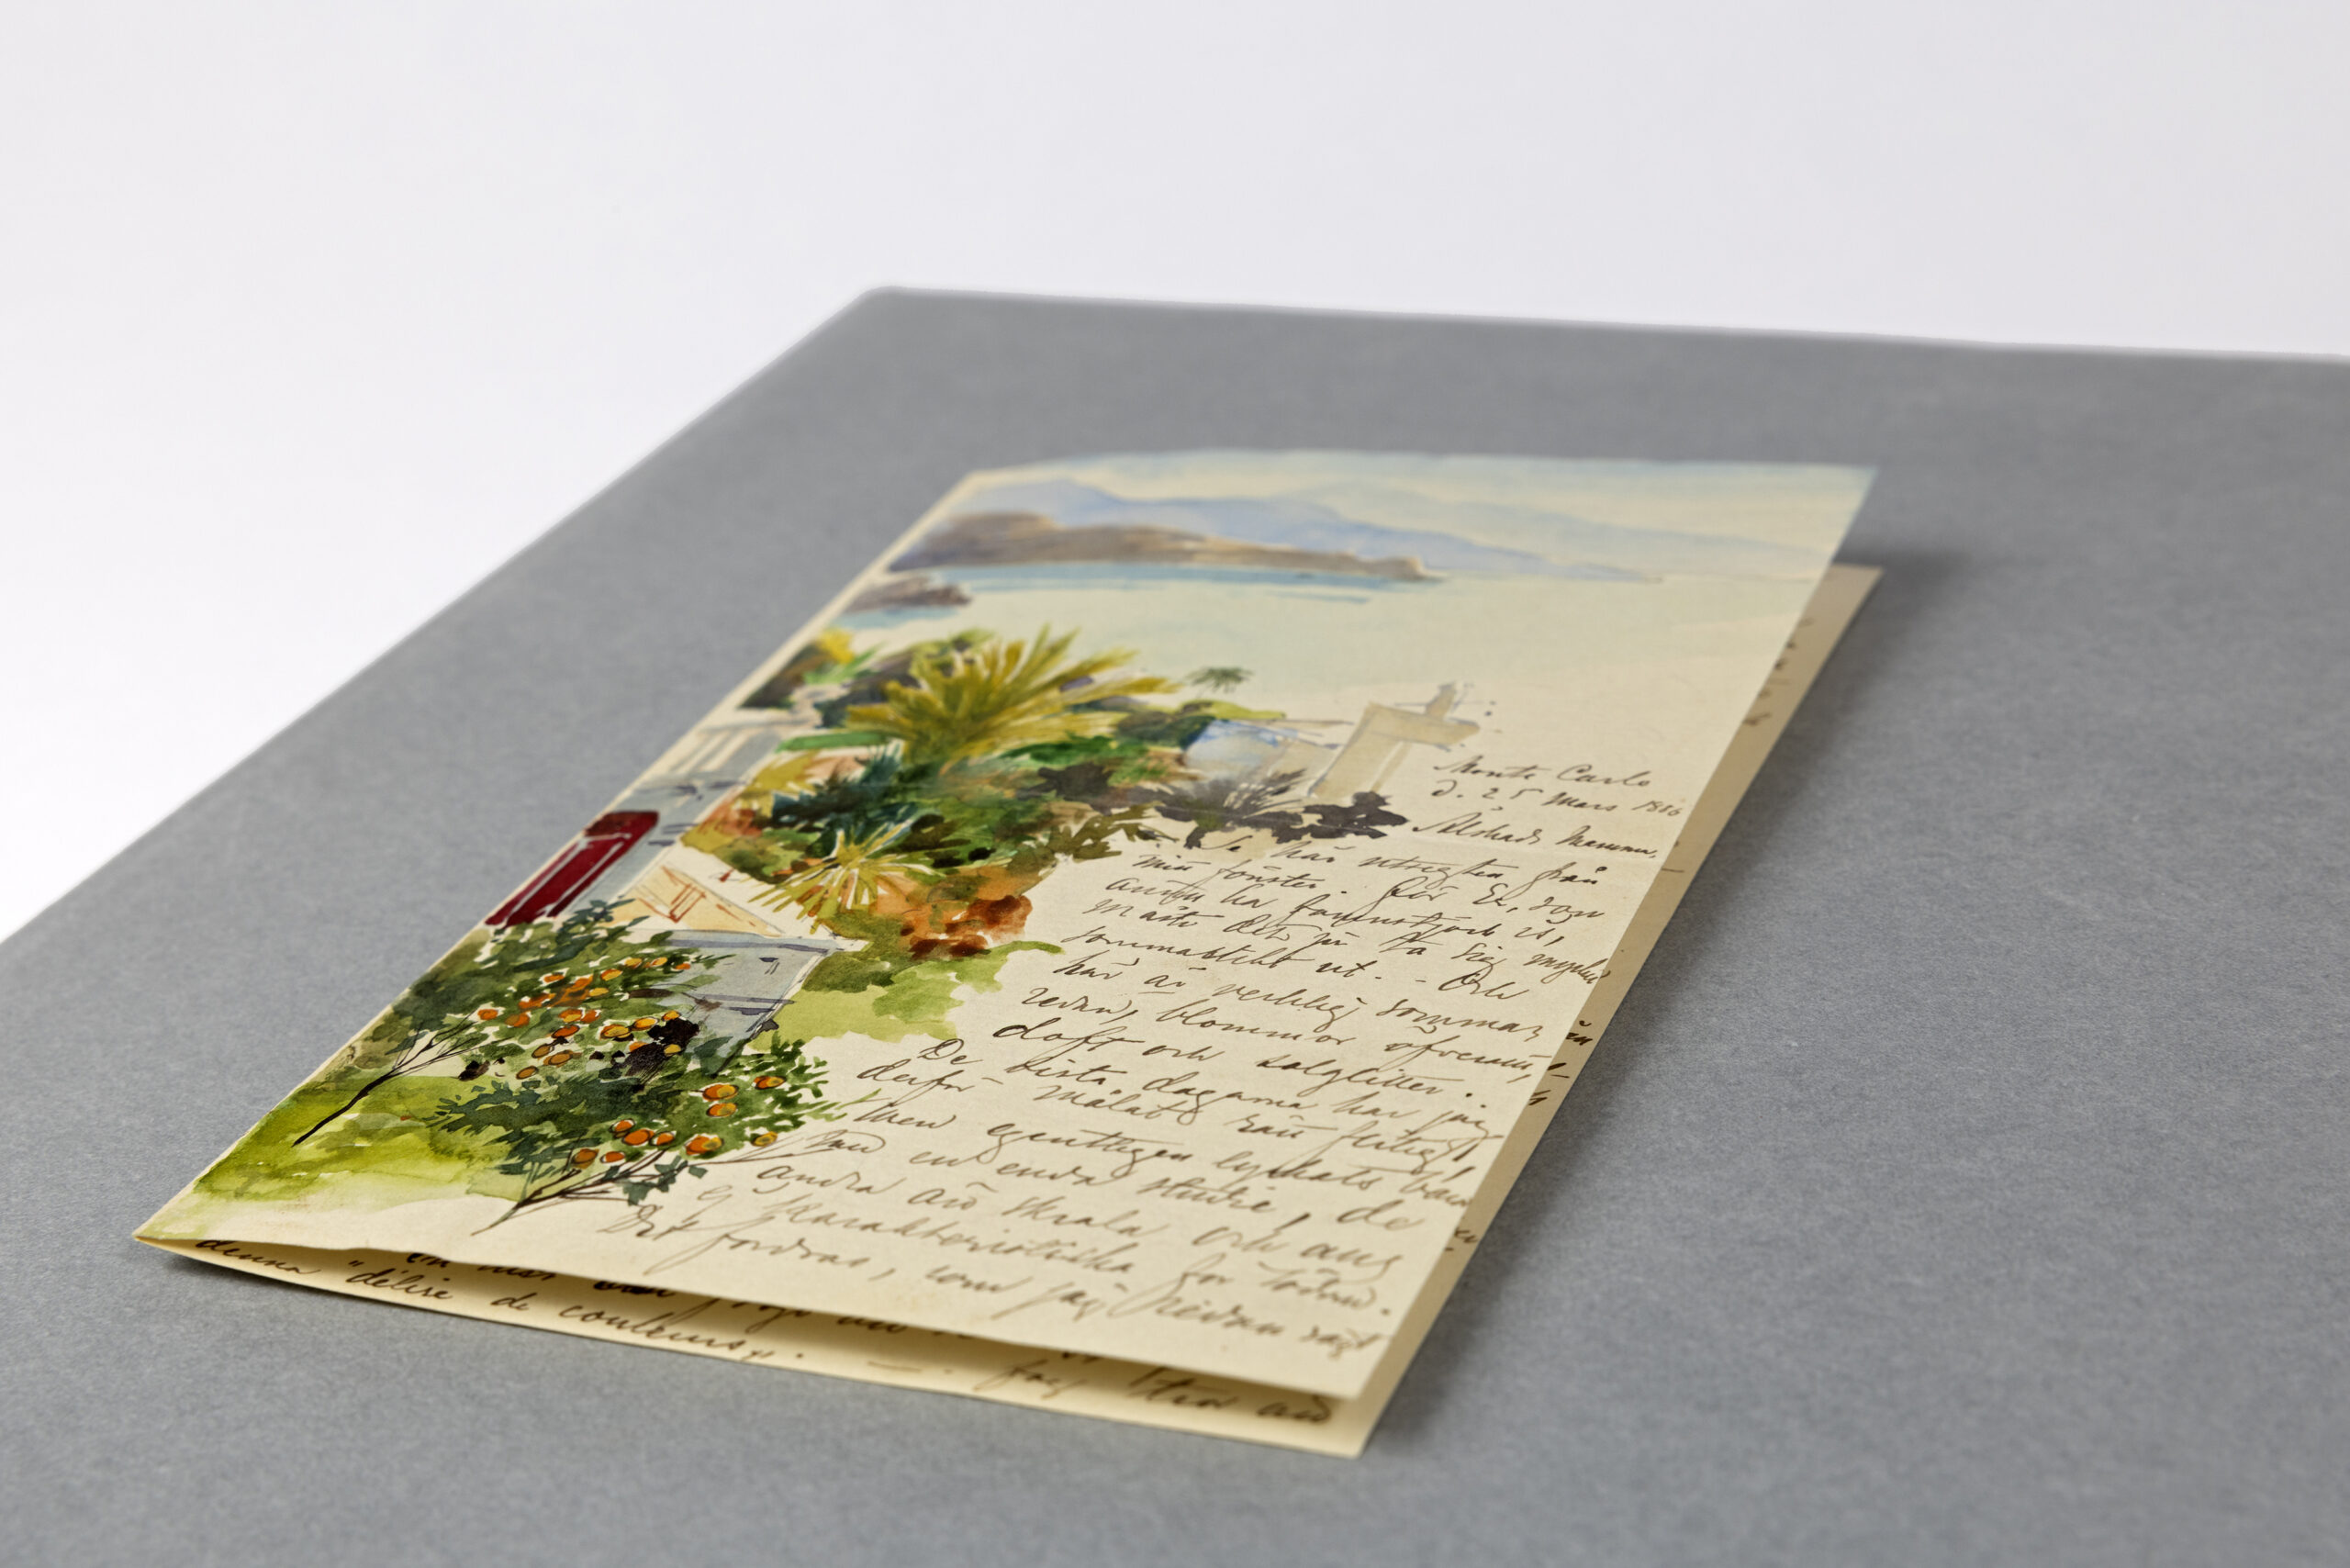 Monte Carlo
d. 25 Mars 1886
Älskade Mamma,
Se här utsigten från
mitt fönster. För Er, som
ännu ha famnstjock is,
måste det ju ta sig mycket
sommarlikt ut. - Och
här är verklig sommar
redan, blommor öfverallt,
doft och solglitter.
De sista dagarna har jag
derför målat rätt flitigt,
men egentligen lyckats bara
med en enda studie, de
andra äro skrala och ans
ej karakteristiska för Södern.
Det fordras, som jag redan sagt
denna "délire de couleurs".
— . Jag tror att